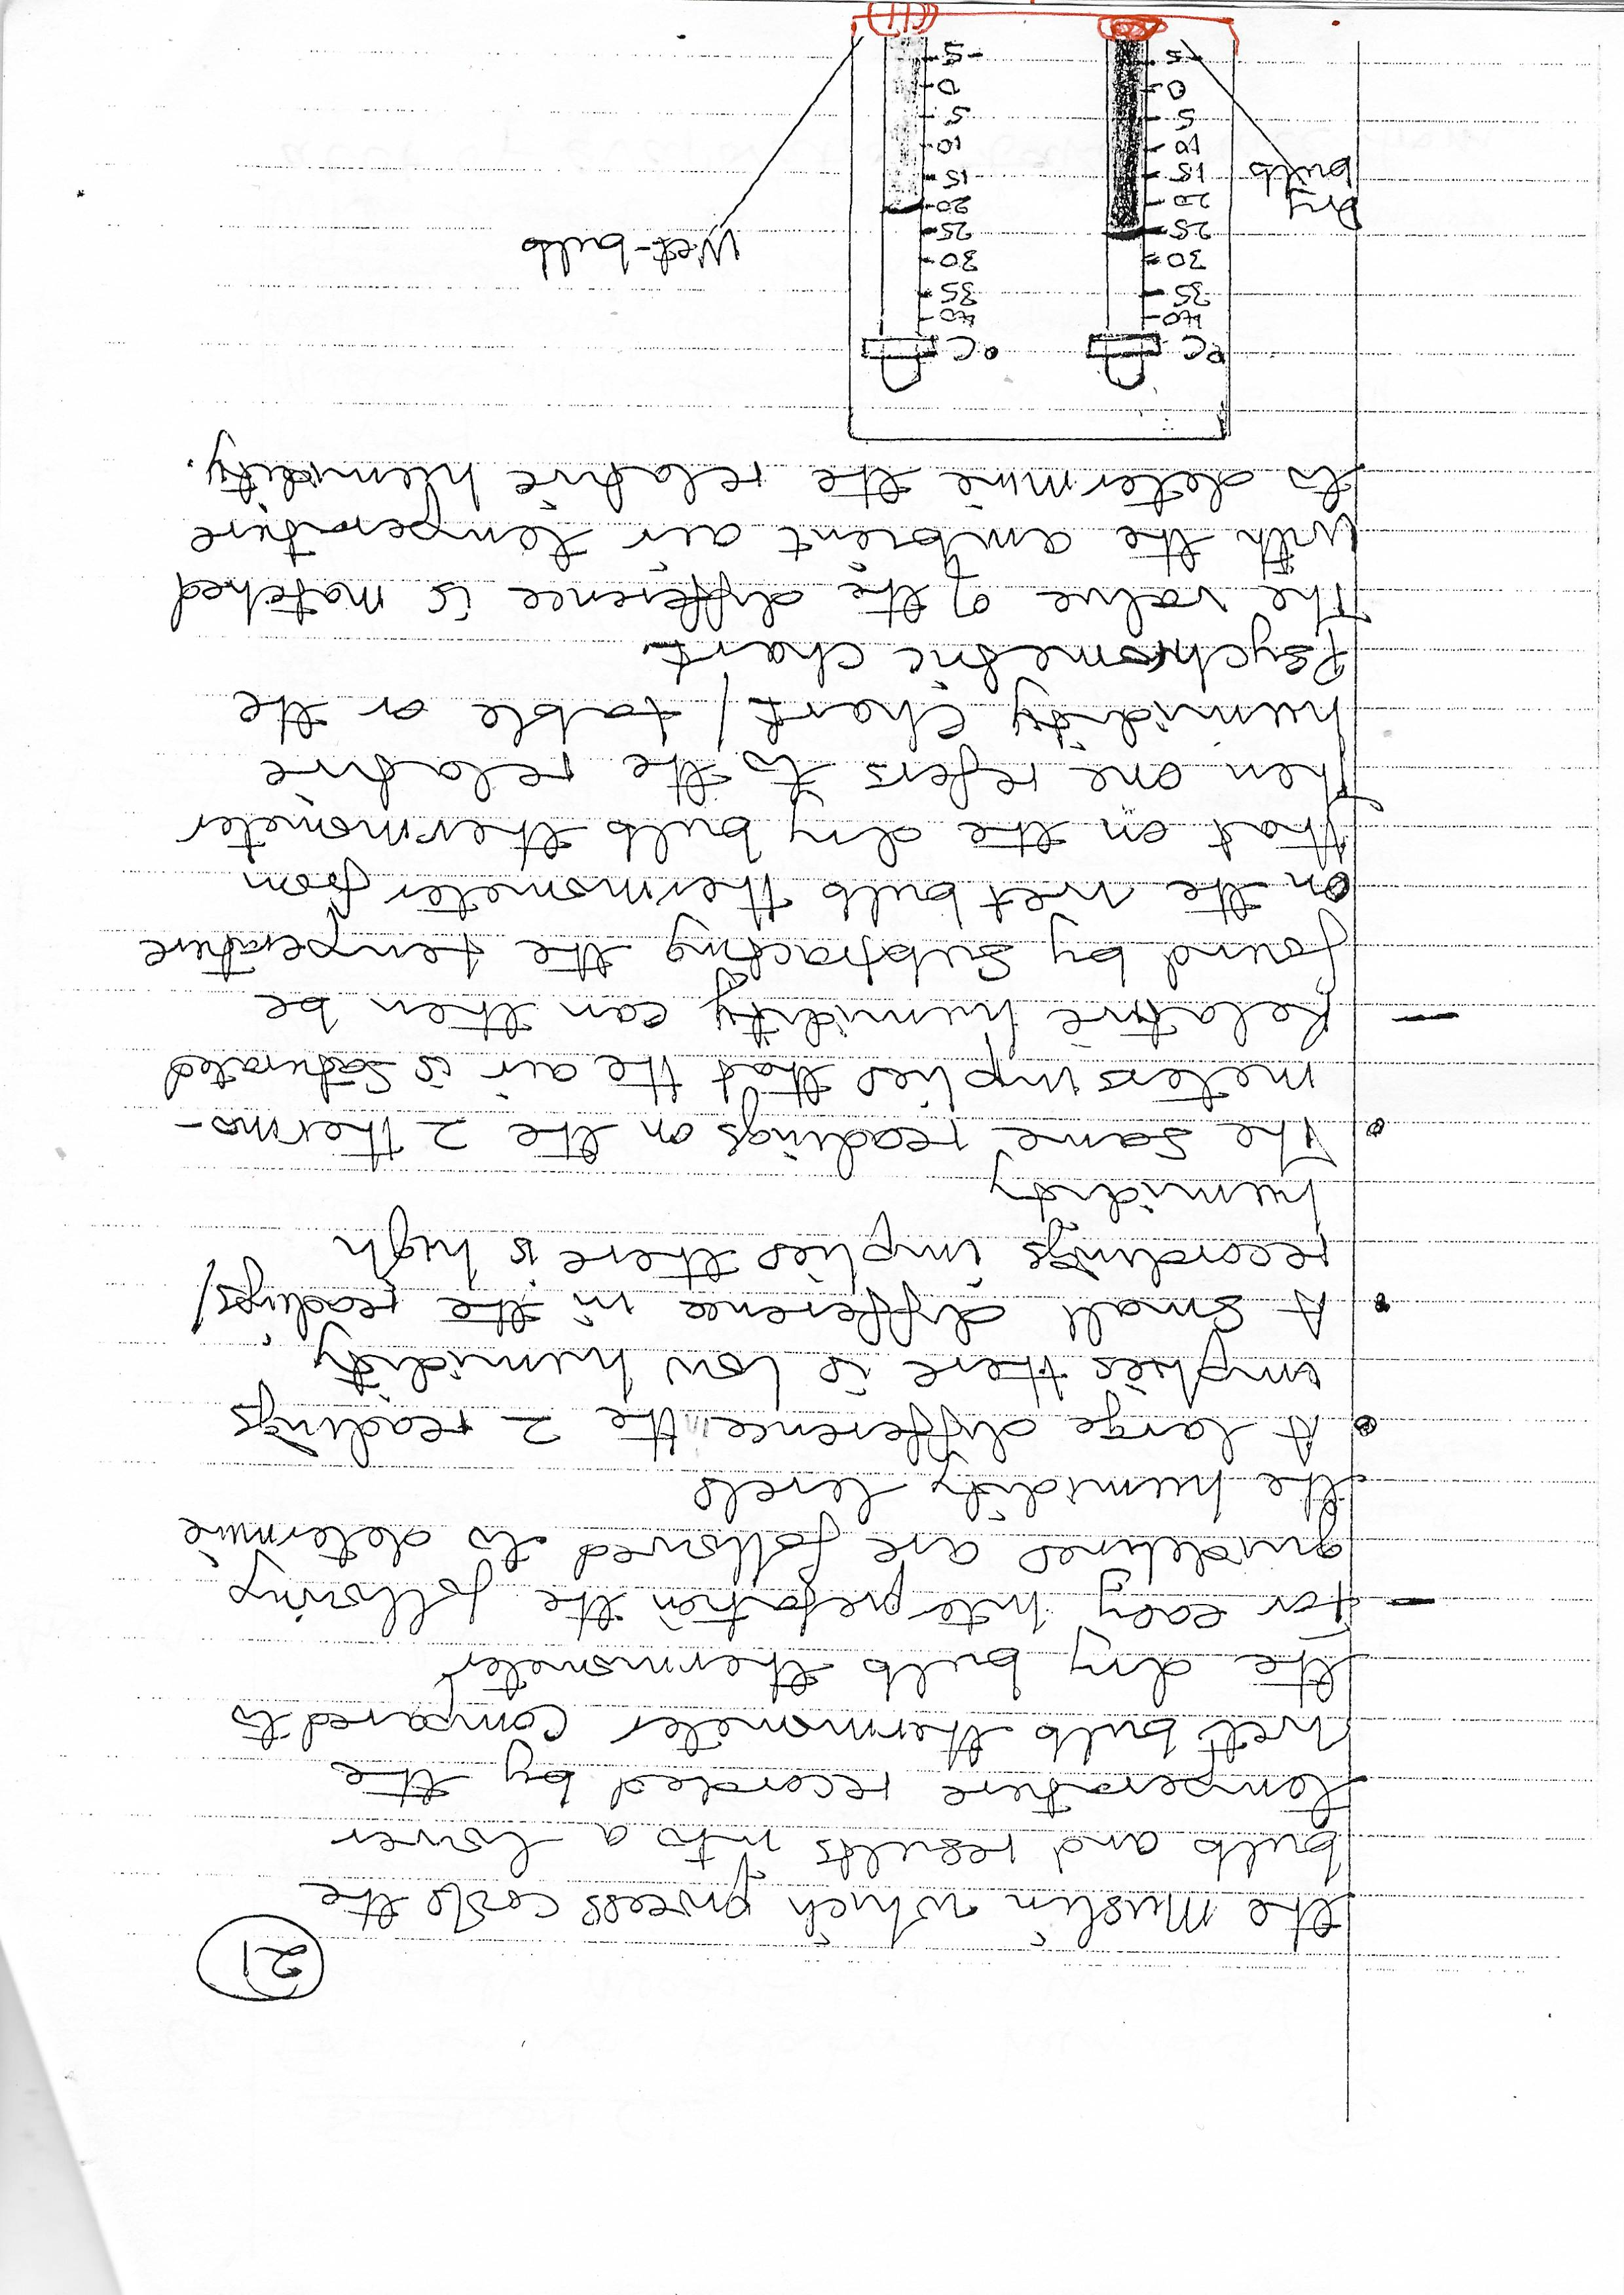 21
the muslin which process cools the
bulb and results into a lower
temperature recorded by the
wet bulb thermometer compared to
the dry bulb thermometer
- For easy interpretation the following
guidelines are followed to determine
the humidity levels
• A large difference the 2 readings
implies there is low humidity
• A small difference in the readings/
recordings implies there is high
humidity
• The same readings on the 2 thermo-
meters implies that the air is saturated
- Relative humidity can then be
found by subtracting the temperature
on the wet bulb thermometer from
that on the dry bulb thermometer
Then one refers to the relative
humidity chart / table or the
Psychrometric chart.
The value of the difference is matched
with the ambient air temperature
to determine the relative humidity.
°C °C
40 40
35 35
30 30
25 25
20 20
15 15
10 10
5 5
0 0
-5 -5
Dry
bulb
Wet-bulb